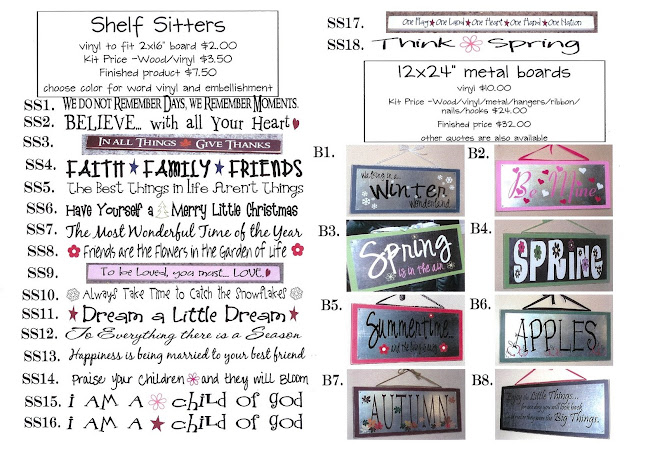 Shelf Sitters
vinyl to fit 2x16" board $2.00
Kit Price -Wood/vinyl $3.50
Finished product $7.50
choose color for word vinyl and embellishment
SS1. WE DO NOT REMEMBER DAYS, WE REMEMBER MOMENTS.
SS2. BELIEVE... with all Your Heart
SS3. IN ALL THINGS GIVE THANKS
SS4. FAITH FAMILY FRIENDS
SS5. The Best Things in life Aren't Things
SS6. Have Yourself a Merry Little Christmas
SS7. The Most Wonderful Time of the Year
SS8. Friends are the Flowers in the Garden of Life
SS9. To be Loved, you must... LOVE
SS10. Always Take Time to Catch the Snowflakes
SS11. Dream a Little Dream
SS12. To Everything there is a Season
SS13. Happiness is being married to your best friend
SS14. Praise your Children and they will Bloom
SS15. i AM A child of god
SS16. i AM A child of god
SS17. One Flag One Land One Heart One Hand One Nation
SS18. Think Spring
12x24" metal boards
vinyl $10.00
Kit Price -Wood/vinyl/metal/hangers/ribbon/
nails/hooks $24.00
Finished price $32.00
other quotes are also available
B1. Walking in a
Winter
wonderland
B2. Be Mine
B3. Spring
is in the air
B4. SPRING
B5. Summertime...
and the living is easy
B6. APPLES
B7. AUTUMN
B8. Enjoy the Little Things...
for someday you will look back
and realize they were the Big Things.